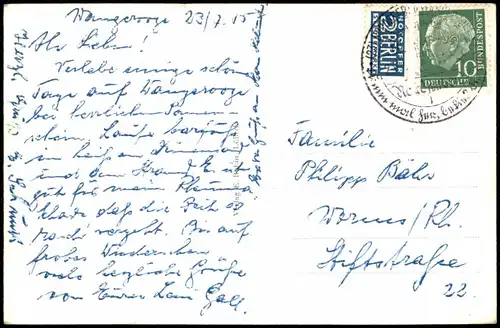 Wangerooge 23/7.55
Ihr Lieben!
Verlebe einige schöne
Tage auf Wangerooge
bei herrlichem Sonnen-
schein. Laufe barfuß
im heißen Dünensand
und den Strand. Es ist
gut für mein Rheuma
schade daß die Zeit so
rasch vergeht. Bis auf
frohes Wiedersehen
viele herzliche Grüße
von Eurer
Herzl.
NOTOPFER
2 BERLIN
STEUERMARKE
DEUTSCHE
BUNDESPOST
10
Familie
Philipp Bähr
Worms/Rh.
Stiftstraße
22.